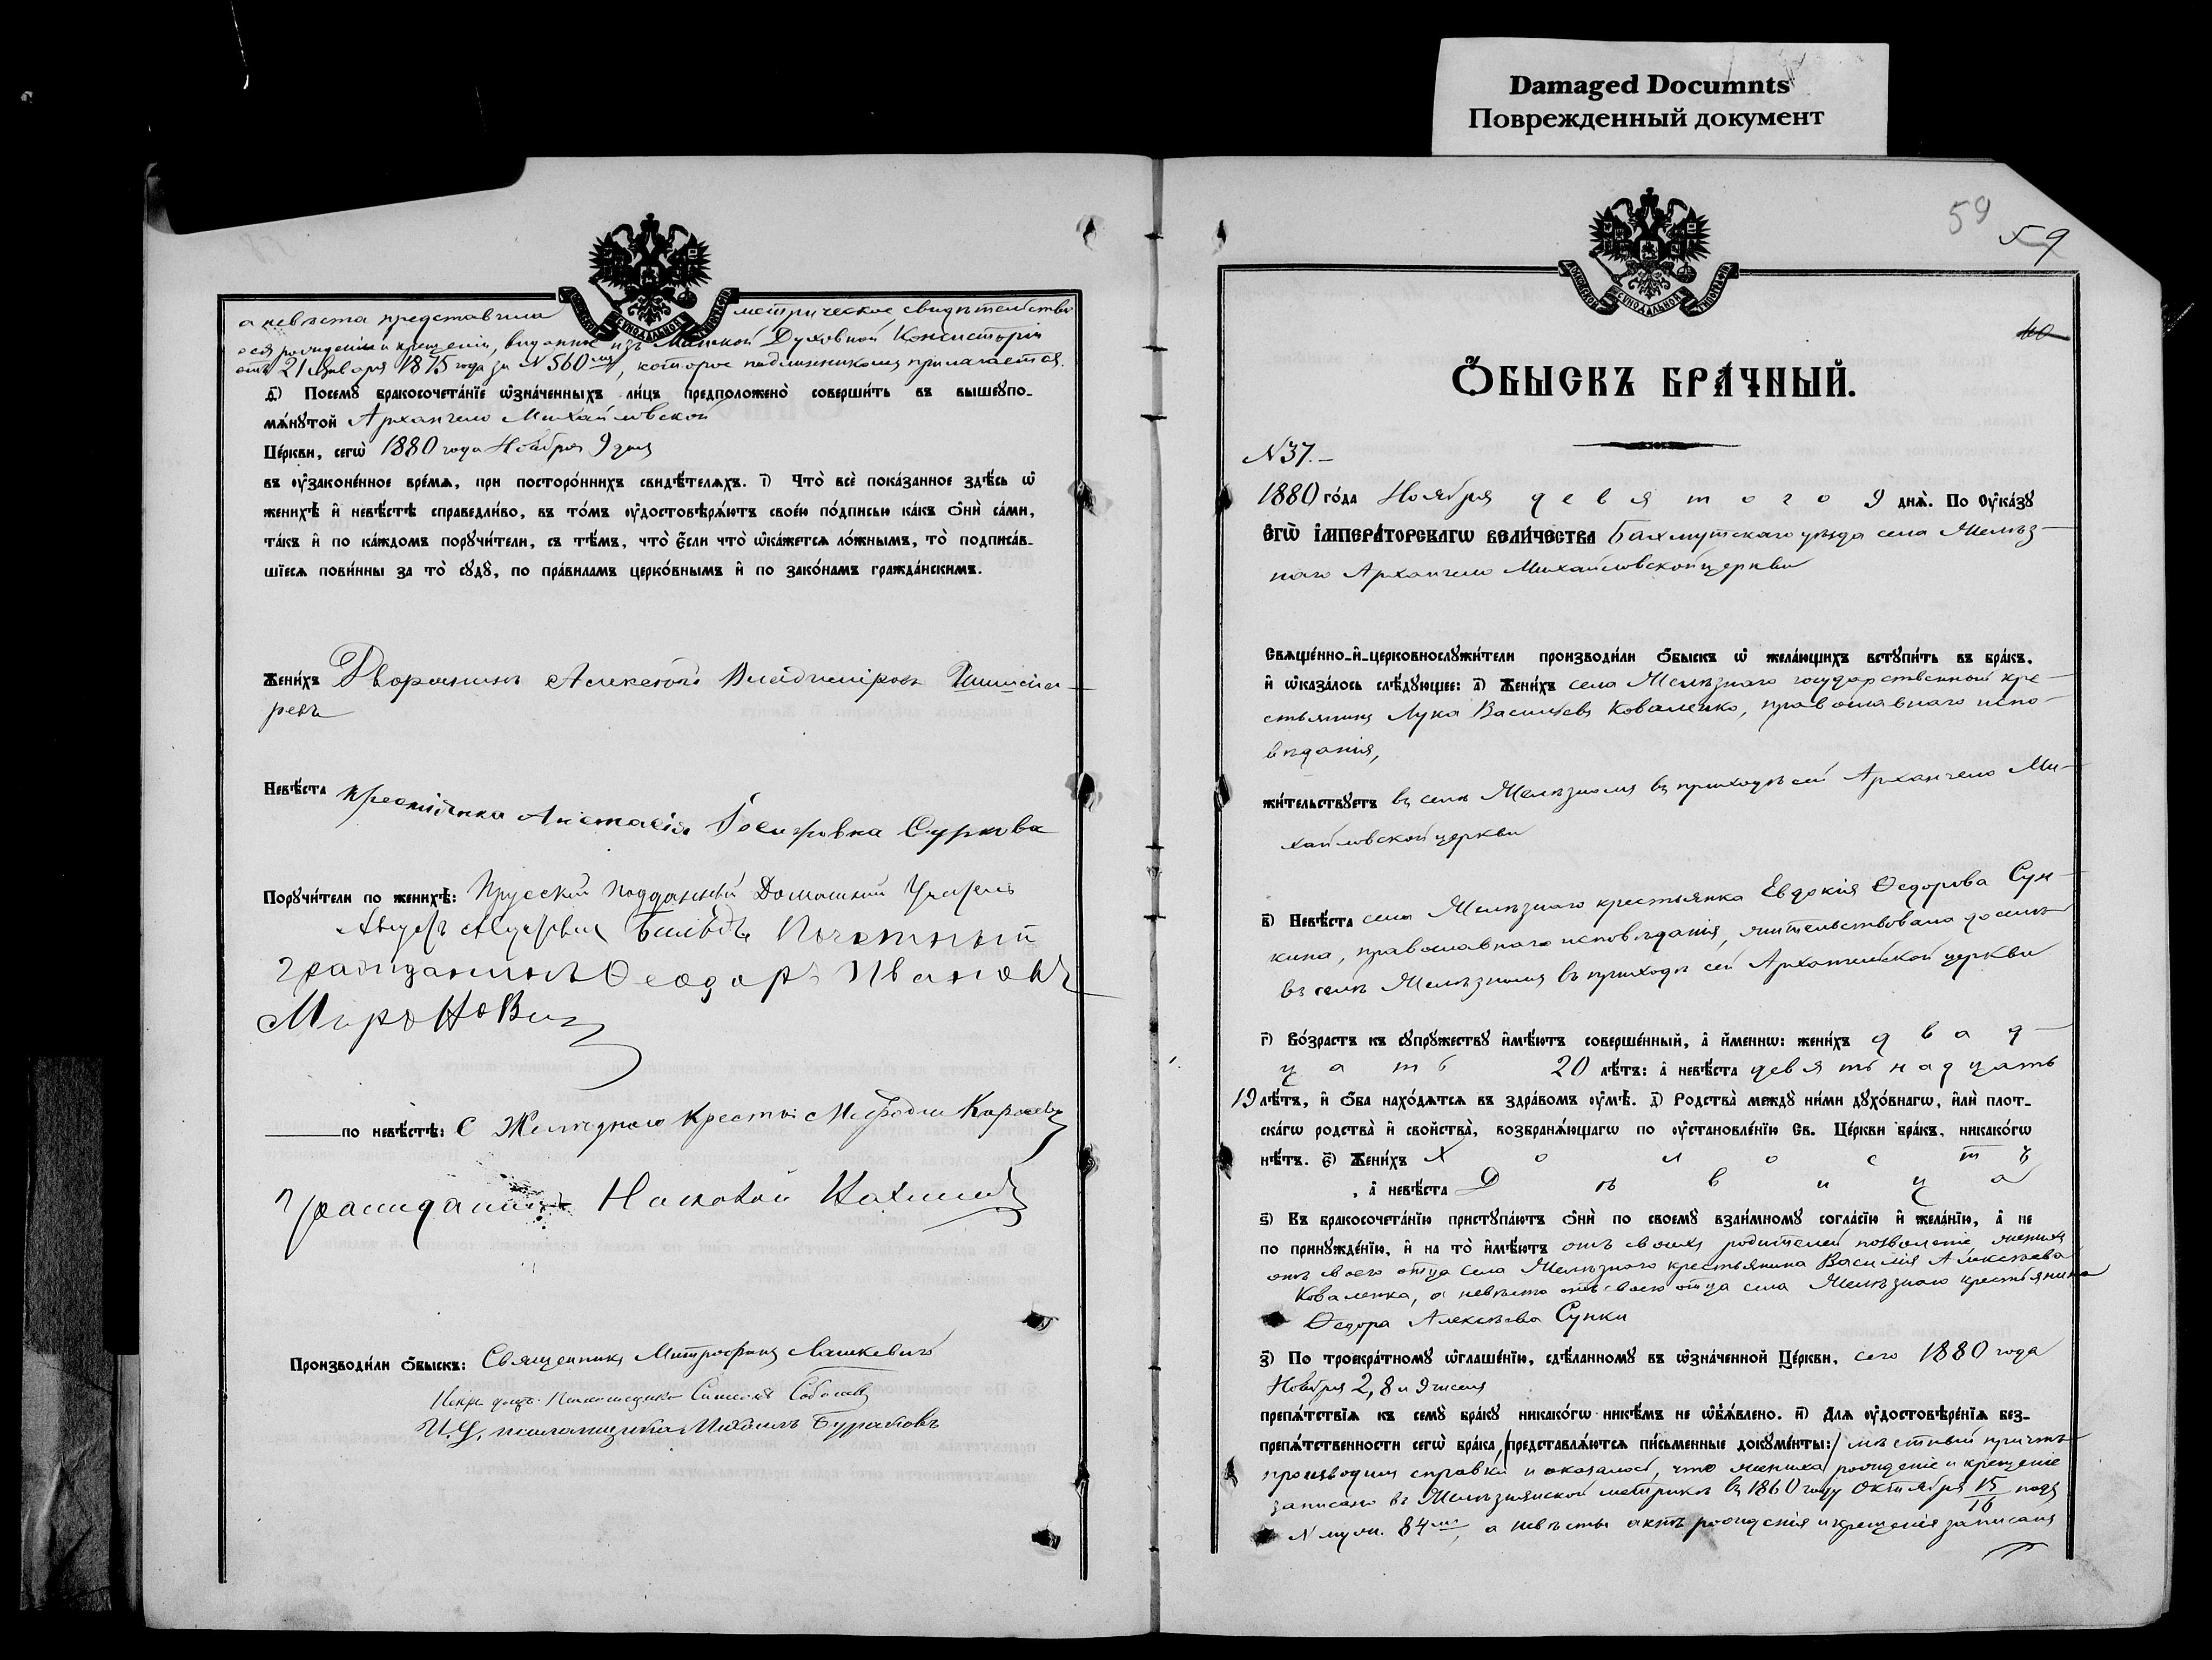 Damaged Documnts
Поврежденный документ
а невѣста представила метрическое свидѣтельство
о ея рожденіи и крещеніи, выданное изъ Духовной Консисторіи
отъ 21 Января 1875 года за № 560мъ, которое подлинникомъ прилагается.
д҃і) Посемꙋ бракосочета́нїе ѡ҆зна́ченныхъ ли́цъ предположено̀ соверши́ть въ вышеꙋпо-
мѧ́нꙋтой Архангело Михайловской
Це́ркви, сегѡ̀ 1880 года Ноября 9 дня
въ ᲂу҆законе́нное вре́мѧ, при посторо́ннихъ свидѣ́телѧхъ. і҃) Что̀ всѐ пока́занное здѣ́сь ѡ҆
женихѣ̀ и҆ невѣ́стѣ справедли́во, въ то́мъ ᲂу҆достовѣрѧ́ютъ свое́ю по́дписью ка́къ ѻ҆нѝ са́ми,
та́къ и҆ по ка́ждомъ порꙋчи́тели, съ тѣ́мъ, что̀ є҆́сли что̀ ѡ҆ка́жетсѧ ло́жнымъ, то̀ подписа́в-
шїесѧ пови́нны за то̀ сꙋдꙋ̀, по пра́виламъ церко́внымъ и҆ по зако́намъ гражда́нскимъ.
Жени́хъ Дворянинъ Алексѣй Владиміровъ
ревъ
Невѣ́ста Крестьянка Анастасія Іосифовна Суркова
Порꙋчи́тели по женихѣ̀: Прусскій подданный Домашній Учитель
Почетный
гражданинъ Ѳеодоръ Ивановъ
Мироновичъ
по невѣ́стѣ: С Желѣзного Крестья: Мефодій
гражданинъ
Производи́ли ѻ҆́быскъ: Священникъ Митрофанъ Лашкевичъ
И. д. псаломщика Михаилъ Бураковъ
59
59
60
Ѻ҆́БЫСКЪ БРА́ЧНЫЙ.
№ 37.–
1880 го́да Ноября девятого 9 днѧ̀. По Оу҆ка́зꙋ
Є҆гѡ̀ І҆мпера́торскагѡ вели́чества Бахмутскаго уѣзда села Желѣз-
наго Архангело Михайловской церкви
Свѧще́нно-и҆-церковнослꙋжи́тели производи́ли ѻ҆́быскъ ѡ҆ жела́ющихъ встꙋпи́ть въ бра́къ.
и҆ ѡ҆каза́лось слѣ́дꙋющее: а҃) Жени́хъ села Желѣзнаго государственный кре-
стьянинъ Лука Васильевъ Коваленко, православнаго испо-
вѣданія,
жи́тельствꙋетъ въ селѣ Желѣзномъ въ приходѣ сей Архангело Ми-
хайловской церкви
в҃) Невѣ́ста села Желѣзнаго крестьянка Евдокія Ѳедорова Сун-
кина, православнаго исповѣданія, жительствовала доселѣ
въ селѣ Желѣзномъ въ приходѣ сей Архангельской церкви
г҃) Во́зрастъ къ сꙋпрꙋжествꙋ и҆мѣ́ютъ соверше́нный, а҆ и҆́меннѡ: жени́хъ двад-
цать 20 лѣ́тъ: а҆ невѣ́ста девятнадцать
19 лѣ́тъ, и҆ ѻ҆́ба нахо́дѧтсѧ въ здра́вомъ ᲂу҆мѣ̀. д҃) Родства̀ междꙋ̀ ни́ми дꙋхо́внагѡ, и҆лѝ плот-
ска́гѡ родства̀ и҆ сво́йства̀, возбранѧ́ющагѡ по ᲂу҆становле́нїю Св. Це́ркви бра́къ, никако́гѡ
нѣ́тъ. є҃) Жени́хъ Холостъ
, а҆ невѣ́ста Дѣвица
ѕ҃) Въ бракосочета́нїю пристꙋпа́ютъ ѻ҆нѝ по своемꙋ̀ взаи́мномꙋ согла́сїю и҆ жела́нїю, а҆ не
по принꙋжде́нїю, и҆ на то̀ и҆мѣ́ютъ отъ своихъ родителей позволеніе женихъ
отъ своего отца села Желѣзного крестьянина Василія Алексѣева
Коваленка, а невѣста отъ своего отца села Желѣзнаго крестьянина
Ѳедора Алексѣева Сунки
з҃) По троекра́тномꙋ ѡ҆глаше́нїю, сдѣ́ланномꙋ въ ѡ҆зна́ченной Це́ркви, сего 1880 года
Ноября 2, 8 и 9 чиселъ
препѧ́тствїѧ къ семꙋ̀ бра́кꙋ никако́гѡ никѣ́мъ не ѡ҆б̾ѧ́влено. и҃) Длѧ ᲂу҆достовѣре́нїѧ без-
препѧ́тственности сегѡ̀ бра́ка, /представлѧ́ютсѧ пи́сьменные докꙋме́нты:/ мѣстный причтъ
производилъ справки и оказалось, что жениха рожденіе и крещеніе
записано въ Желѣзнянской метрикѣ въ 1860 году Октября 15/16 подъ
№ муж. 84мъ, а невѣсты актъ рожденія и крещенія записанъ